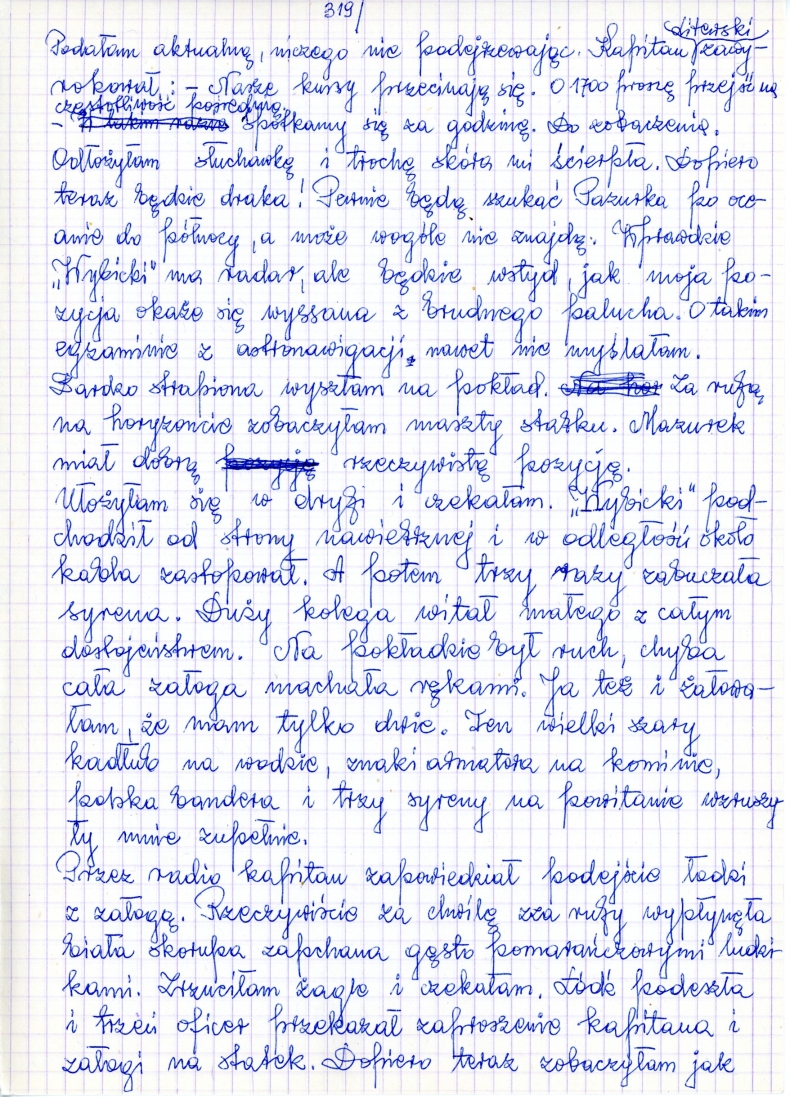 319/
Podałam aktualną, niczego nie podejrzewając. Kapitan zawy-
rokował: – Nasze kursy przecinają się. O 1700 proszę przejść na
częstotliwość pośrednią.
– W takim razie spotkamy się za godzinę. Do zobaczenia.
Odłożyłam słuchawkę i trochę skóra mi ścierpła. Dopiero
teraz będzie draka! Pewnie będą szukać Pazurka po oce-
anie do północy, a może wogóle nie znajdą. Wprawdzie
„Wybicki” ma radar, ale będzie wstyd, jak moja po-
zycja okaże się wyssana z brudnego palucha. O takim
egzaminie z astronawigacji nawet nie myślałam.
Bardzo strapiona wyszłam na pokład. Za rufą
na horyzoncie zobaczyłam maszty statku. Mazurek
miał dobrą pozycję rzeczywistą pozycję.
Ułożyłam się w dryfi i czekałam. „Wybicki” pod-
chodził od strony nawietrznej i w odległości około
kabla zastopował. A potem trzy razy zabuczała
syrena. Duży kolega witał małego z całym
dostojeństwem. Na pokładzie był ruch, chyba
cała załoga machała rękami. Ja też i żałowa-
łam, że mam tylko dwie. Ten wielki szary
kadłub na wodzie, znaki armatora na kominie,
polska bandera i trzy syreny na powitanie wzruszy
ły mnie zupełnie.
Przez radio kapitan zapowiedział podejście łodzi
z załogą. Rzeczywiście za chwilę zza rufy wypłynęła
biała skorupa zapchana gęsto pomarańczowymi ludzi-
kami. Zrzuciłam żagle i czekałam. Łódź podeszła
i trzeci oficer przekazał zaproszenie kapitana i
załogi na statek. Dopiero teraz zobaczyłam jak